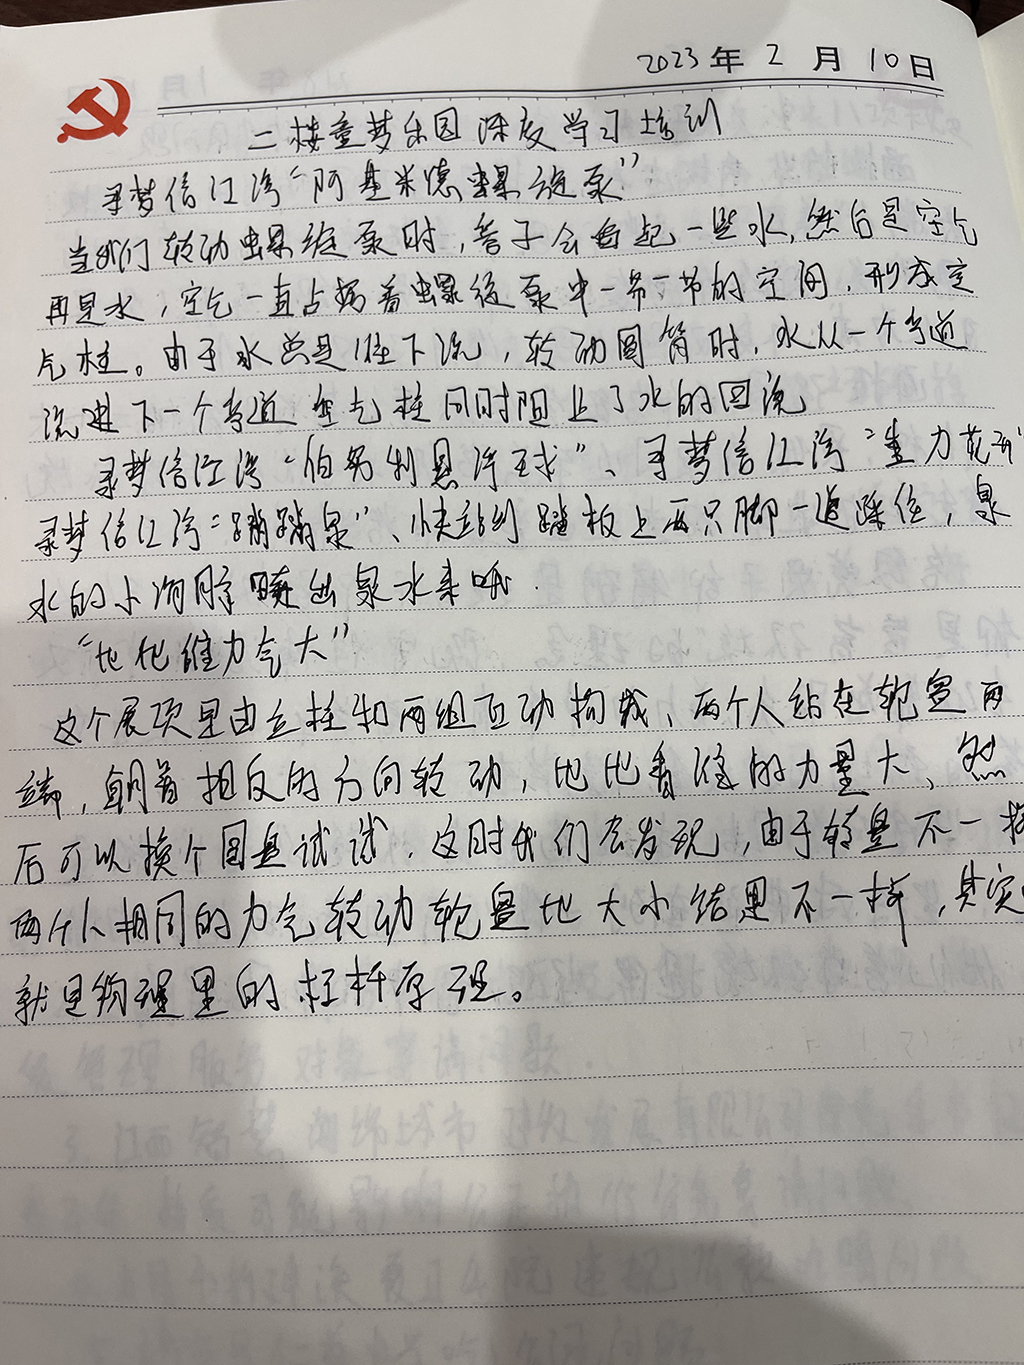 2023年2月10日
二楼童梦乐园深度学习培训
寻梦信江湾“阿基米德螺旋泵”
当我们转动螺旋泵时，管子会舀起一些水，然后是空气
再是水，空气一直占据着螺旋泵中一节一节的空间，形成空
气柱。由于水总是往下流，转动圆筒时，水从一个弯道
流进下一个弯道 空气柱同时阻止了水的回流
寻梦信江湾“伯努利悬浮球”、寻梦信江湾“重力花开”
寻梦信江湾“蹦蹦泉”、快站到踏板上两只脚一边踩住，泉
水的小洞 喷出泉水来哦.
“比比谁力气大”
这个展项是由立柱和两组互动构成、两个人站在轮盘两
端，朝着相反的方向转动，比比看谁的力量大、然
后可以换个圆盘试试．这时我们会发现，由于转盘不一样
两个人相同的力气转动轮盘地大小结果不一样，其实
就是物理里的杠杆原理。